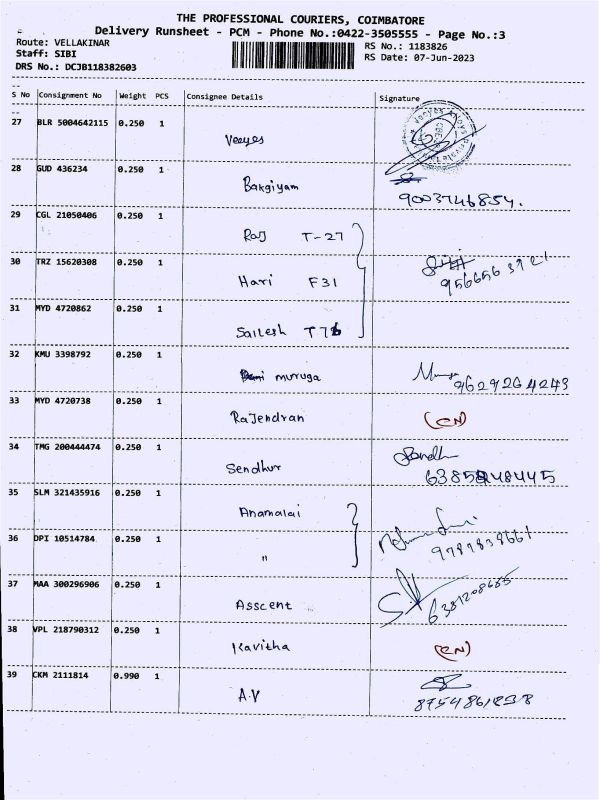 THE PROFESSIONAL COURIERS, COIMBATORE
Delivery Runsheet - PCM - Phone No.:0422-3505555 - Page No.:3
Route: VELLAKINAR RS No.: 1183826
Staff: SIBI RS Date: 07-Jun-2023
DRS No.: DCJB118382603
S No Consignment No Weight PCS Consignee Details Signature
27 BLR 5004642115 0.250 1 Veeyes
28 GUD 436234 0.250 1 Bakgiyam 9003746854.
29 CGL 21050406 0.250 1 Raj T-27
30 TRZ 15620308 0.250 1 Hari F31 956656 3921
31 MYD 4720862 0.250 1 Sailesh
32 KMU 3398792 0.250 1 muruga 9629264243
33 MYD 4720738 0.250 1 Rajendran (CN)
34 TMG 200444474 0.250 1 Sendhur
35 SLM 321435916 0.250 1 Anamalai
36 DPI 10514784 0.250 1 " 9787838661
37 MAA 300296906 0.250 1 Asscent 6381208685
38 VPL 218790312 0.250 1 Kavitha (CN)
39 CKM 2111814 0.990 1 A.V